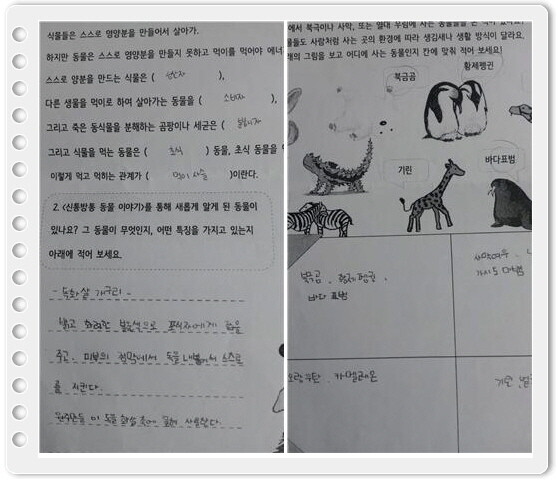 식물들은 스스로 영양분을 만들어서 살아가.
하지만 동물은 스스로 영양분을 만들지 못하고 먹이를 먹어야 에너
스스로 양분을 만드는 식물은 ( 생산자 ),
다른 생물을 먹이로 하여 살아가는 동물을 ( 소비자 ),
그리고 죽은 동식물을 분해하는 곰팡이나 세균은 ( 분해자
그리고 식물을 먹는 동물은 ( 초식 ) 동물, 초식 동물을
이렇게 먹고 먹히는 관계가 ( 먹이 사슬 )이란다.
2. <신통방통 동물 이야기>를 통해 새롭게 알게 된 동물이
있나요? 그 동물이 무엇인지, 어떤 특징을 가지고 있는지
아래에 적어 보세요.
- 독화살 개구리 -
밝고 화려한 보호색으로 포식자에게 겁을
주고, 피부의 점막에서 독을 내뿜어서 스스로
를 지킨다.
원주민들이 이 독을 화살 촉에 묻혀 사용했다.
에서 북극이나 사막, 또는 열대 우림에 사는 동물들을
물들도 사람처럼 사는 곳의 환경에 따라 생김새나 생활 방식이 달라요.
래의 그림을 보고 어디에 사는 동물인지 칸에 맞춰 적어 보세요!
황제펭귄
북극곰
기린
바다표범
북극곰, 황제펭귄,
바다 표범
사막여우,
가시도마뱀
오랑우탄, 카멜레온
기린,